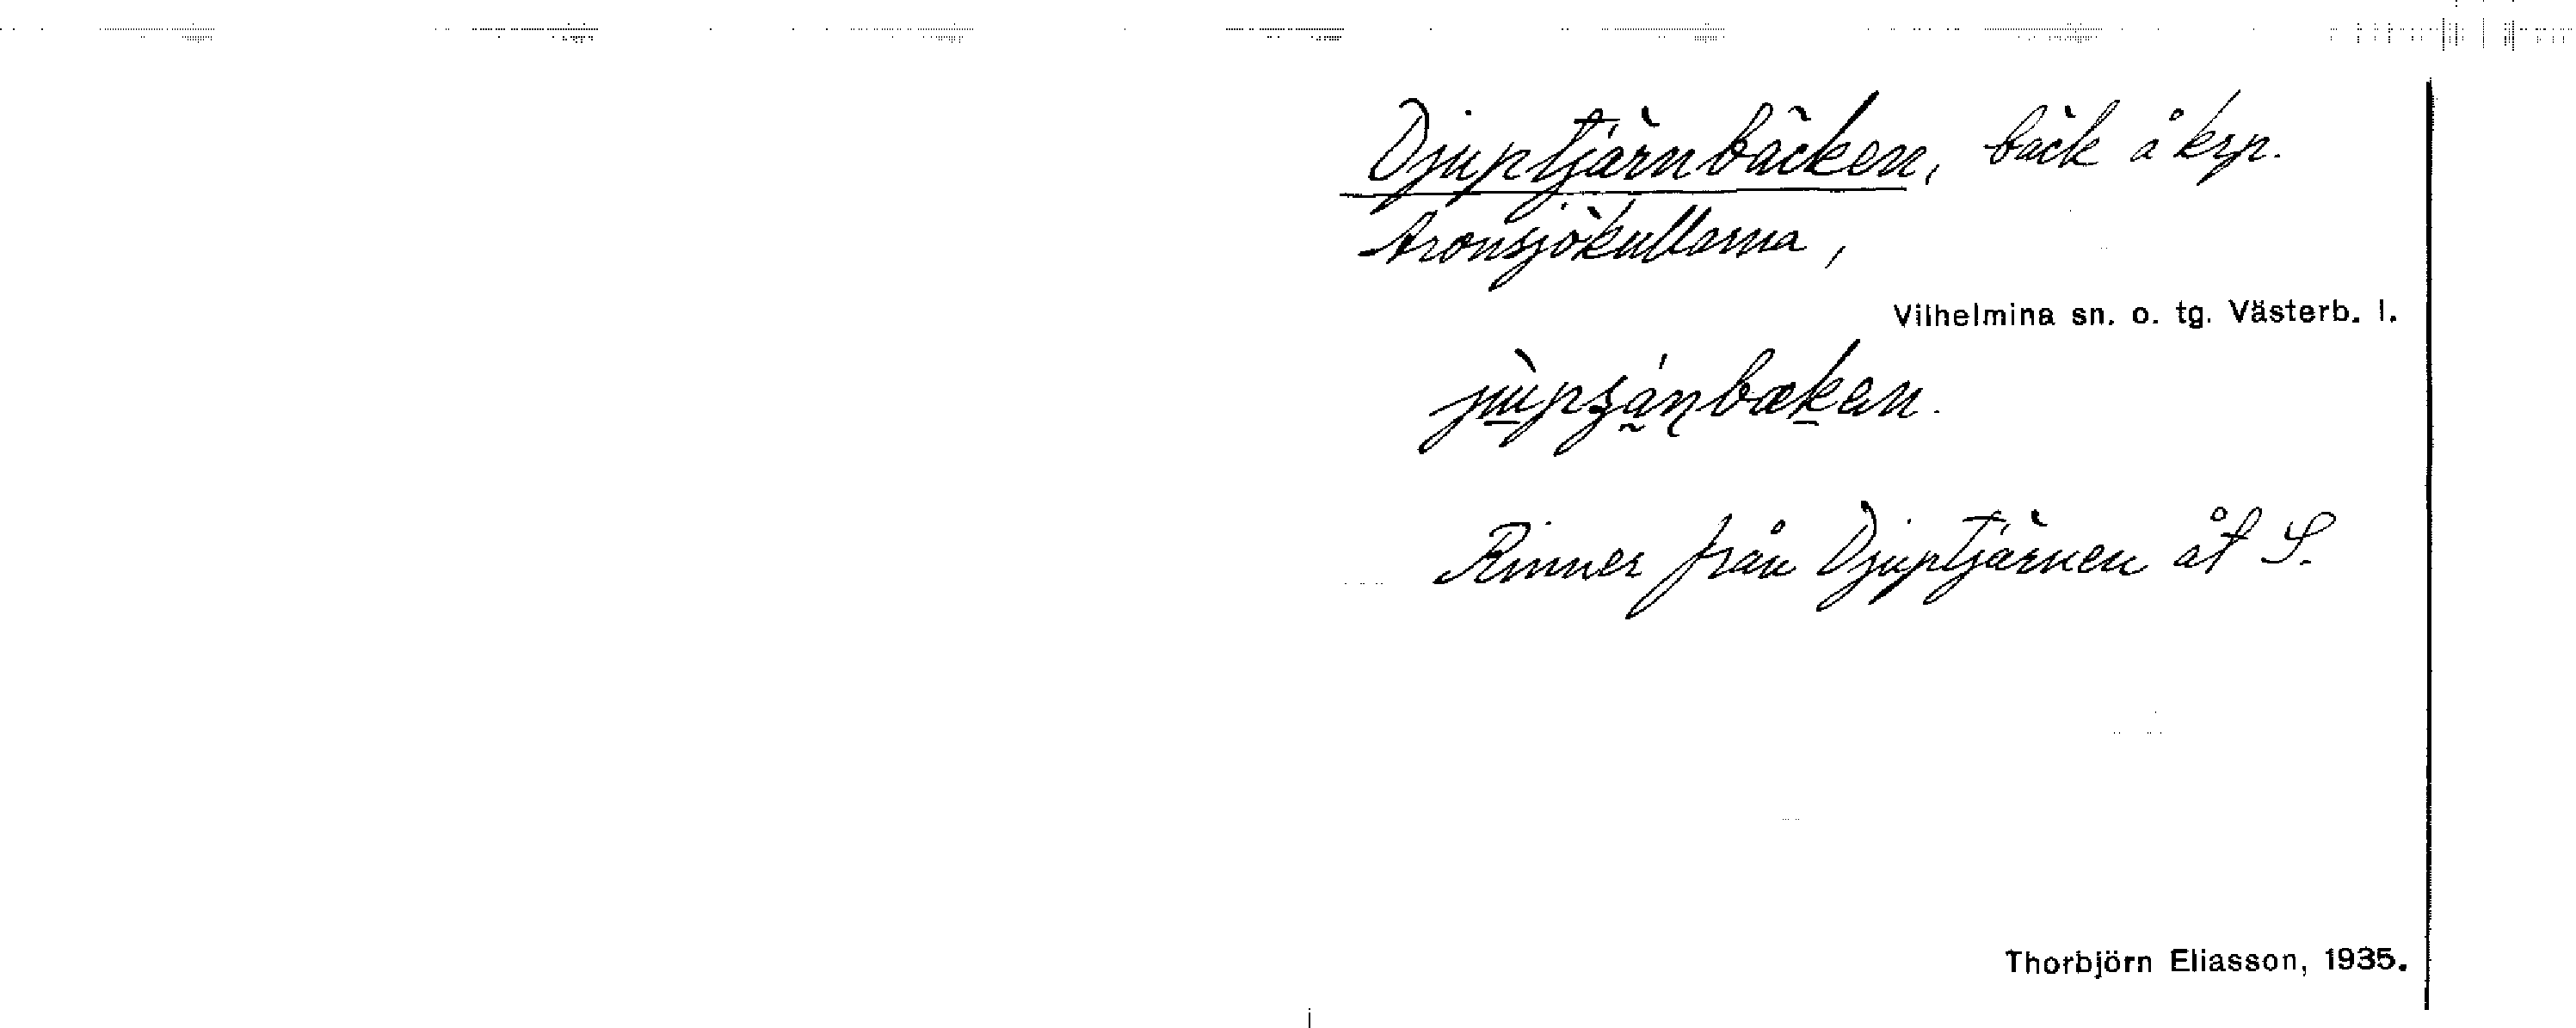 Djuptjärnbäcken, bäck å krp.
Aronsjökullarna,
Vilhelmina sn. o. tg. Västerb. l.
Rinner från Djuptjärnen åt S.
Thorbjörn Eliasson, 1935.